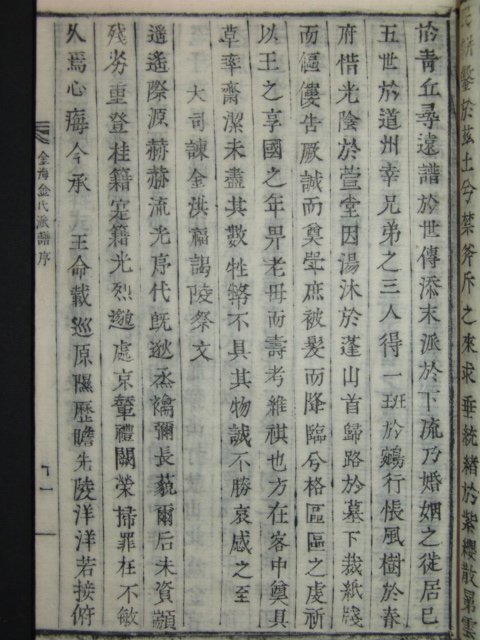 民耕鑿於兹土兮禁斧斤之來求垂統緒於紫纓散暴雲
於靑丘尋遠譜於世傳添末派於下流乃婚姻之徙居已
五世於道州幸兄弟之三人得一班於鵷行悵風樹於春
府惜光陰於萱堂因湯沐於蓬山首歸路於墓下裁紙牋
而傴僂告厥誠而奠斝庶被髮而降臨兮格區區之虔祈
以王之享國之年畀老母而壽考維祺也方在客中奠具
草率齋潔未盡其數牲幣不具其物誠不勝哀感之至
大司諫金洪福謁陵祭文
遥遥際源赫赫流光序代旣逖烝禴彌長藐爾后末資顓
殘劣重登桂籍寔籍光烈邈處京輦禮闕榮掃罪在不敏
久焉心痗今承 王命載巡原隰歷瞻先陵洋洋若接俯
金海金氏派譜序
十一